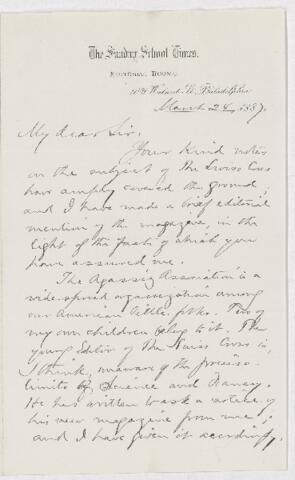 The Sunday School Times.
Editorial Rooms,
Walnut St. Philadelphia
March 24, 1887.
My dear Sir:
Your kind notes
on the subject of The Swiss Cross
have amply covered the ground;
and I have made a brief editorial
mention of the magazine, in the
light of the facts of which you
have assured me.
The Agassiz Association is a
wide-spread organization among
our American little folks. Two of
my own children belong to it. The
young Editor of The Swiss Cross is,
I think, unaware of the precise
limits of Science and Fancy.
He has written to ask a notice of
his new magazine from me;
and I have given it accordingly.